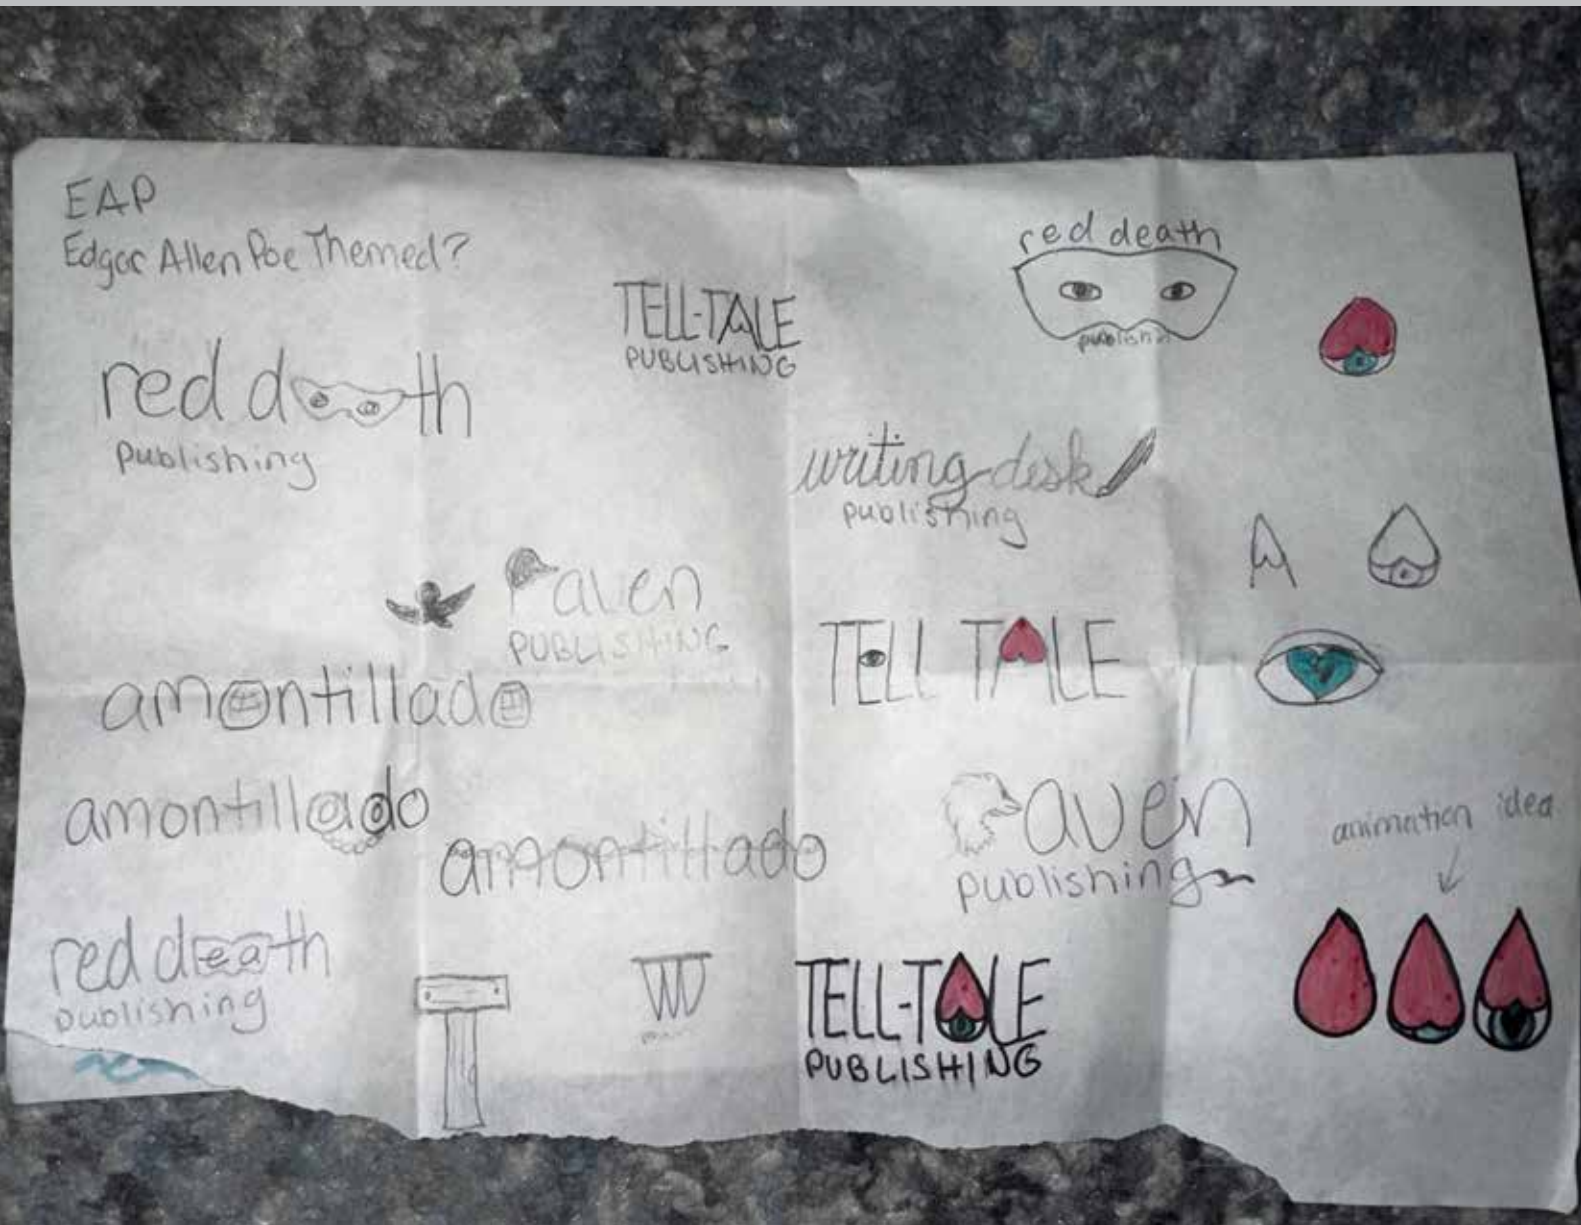 EAP
Edgar Allen Poe Themed?
red death
publishing
TELL-TALE
PUBLISHING
red death
publishin
writing desk
publishing
raven
PUBLISHING
A
TELL TALE
amontillado
amontillado
amontillado
raven
publishing
animation idea
red death
publishing
TELL-TALE
PUBLISHING